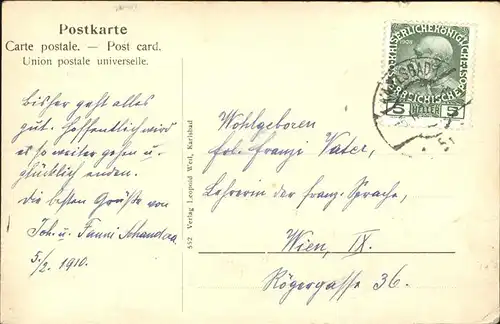 Postkarte
Carte postale. — Post card.
Union postale universelle.
Bisher geht alles
gut. Hoffentlich wird
es so weiter gehen u.
glücklich enden.
Die besten Grüße von
Joh. u. Fanni
5./2. 1910.
552 Verlag Leopold Weil, Karlsbad
KAISERLICHEKÖNIGLICHE
1908
KARLSBAD
5 HELLER 5
Wohlgeboren
frl. Franzi Vater,
Lehrerin der franz. Sprache,
Wien, IX.
Rögergasse 36.